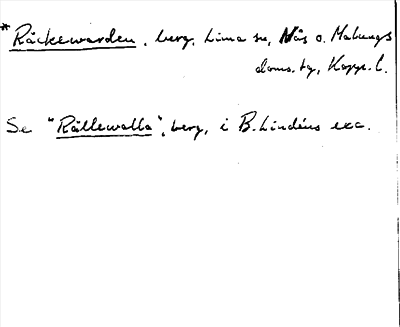 * Räckewarden, berg, Lima sn, Nås o. Malungs
doms. bg, Kopp. l.
Se "Rällewalla", berg, i B. Lindéns exc.